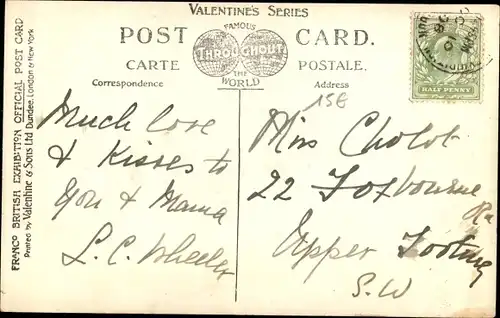 VALENTINE'S SERIES
POST CARD.
FAMOUS
THROUGHOUT
THE
WORLD
CARTE POSTALE.
Correspondence
Address
15E
HALF PENNY
FRANCO BRITISH EXHIBITION OFFICIAL POST CARD
Printed by Valentine & Sons Ltd Dundee, London & New York
Much love
& Kisses to
You & Mama
L. C. Wheeler
Miss Cholot
22 Foxbourne
Rd
Upper Tooting
S.W